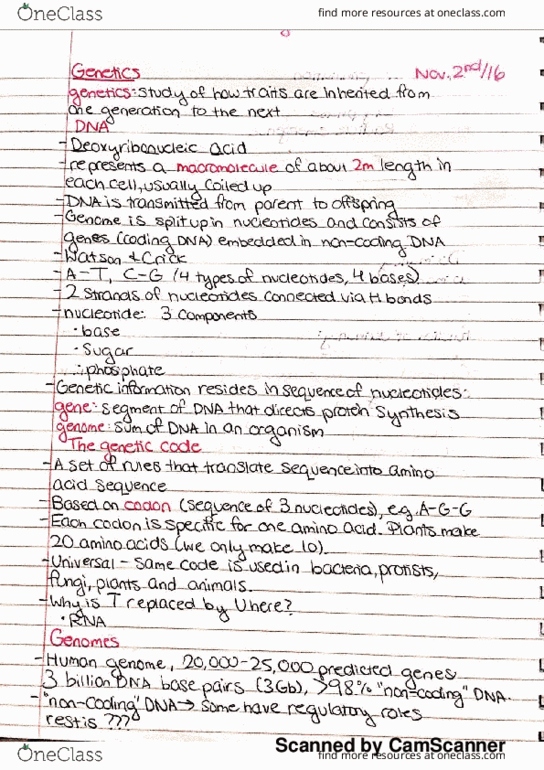 OneClass
find more resources at oneclass.com
Genetics
Nov. 2nd/16
genetics: study of how traits are inherited from
one generation to the next
DNA
- Deoxyribonucleic acid
- represents a macromolecule of about 2m length in
each cell, usually coiled up
- DNA is transmitted from parent to offspring
- Genome is split up in nucleotides and consists of
genes (coding DNA) embedded in non-coding DNA
- Watson & Crick
- A-T, C-G (4 types of nucleotides, 4 bases)
- 2 strands of nucleotides connected via H bonds
- nucleotide: 3 components
• base
• sugar
• phosphate
- Genetic information resides in sequence of nucleotides:
gene: segment of DNA that directs protein synthesis
genome: sum of DNA in an organism
The genetic code
- A set of rules that translate sequence into amino
acid sequence
- Based on codon (sequence of 3 nucleotides), e.g. A-G-G
- Each codon is specific for one amino acid. Plants make
20 amino acids (we only make 10).
- Universal - same code is used in bacteria, protists,
fungi, plants and animals.
- Why is T replaced by U here?
• RNA
Genomes
- Human genome, 20,000-25,000 predicted genes
3 billion DNA base pairs (3Gb), >98% "non-coding" DNA.
- "non-coding" DNA → some have regulatory roles
rest is ???
Scanned by CamScanner
OneClass
find more resources at oneclass.com